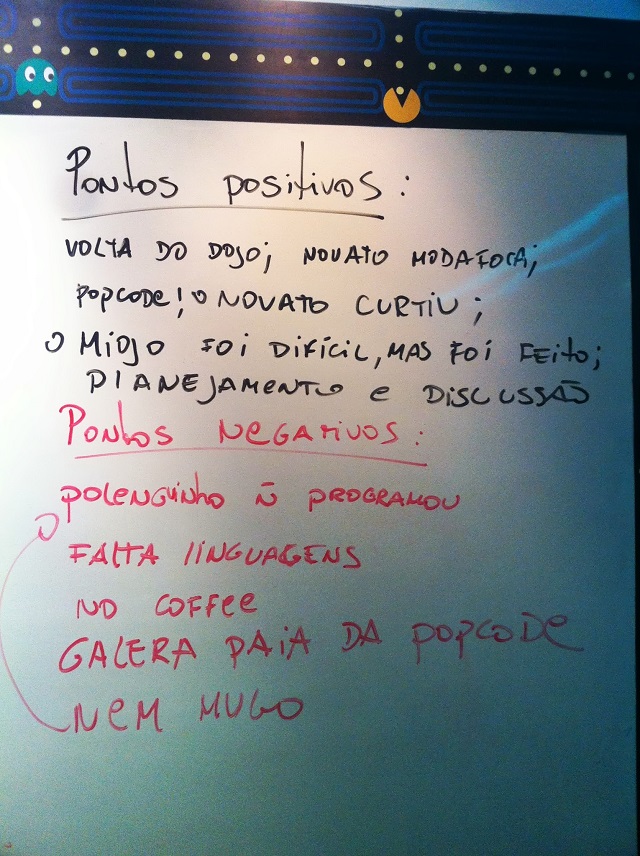 Pontos positivos:
VOLTA DO DOJO; NOVATO MODAFOCA;
POPCODE! O NOVATO CURTIU;
O MIOJO FOI DIFÍCIL, MAS FOI FEITO;
PLANEJAMENTO e DISCUSSÃO
Pontos Negativos:
POLENGUINHO Ñ PROGRAMOU
FALTA LINGUAGENS
NO COFFEE
GALERA PAIA DA POPCODE
NEM MUGO